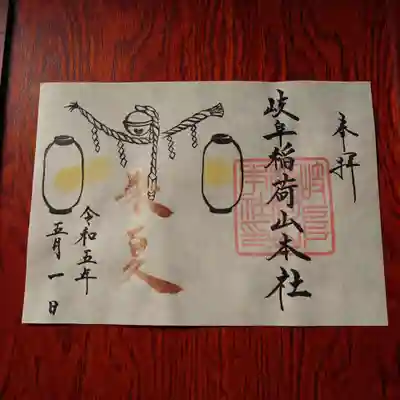 奉拝
岐阜稲荷山本社
令和五年
五月一日